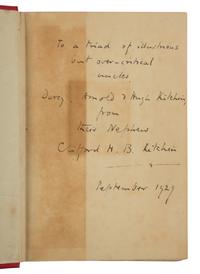 To a triad of illustrious
but over-critical
uncles
Darcy, Arnold & Hugh Kitchin
from
their Nephew
Clifford H. B. Kitchin
September 1929